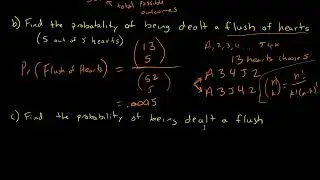 total possible
outcomes
b) Find the probability of being dealt a flush of hearts
(5 out of 5 hearts)
A, 2, 3, 4, ... J Q K
13 hearts choose 5
Pr (Flush of Hearts) = (13 5) / (52 5)
A 3 4 J 2
A 3 J 4 2
(n k) = n! / k!(n-k)!
= .0005
c) Find the probability of being dealt a flush